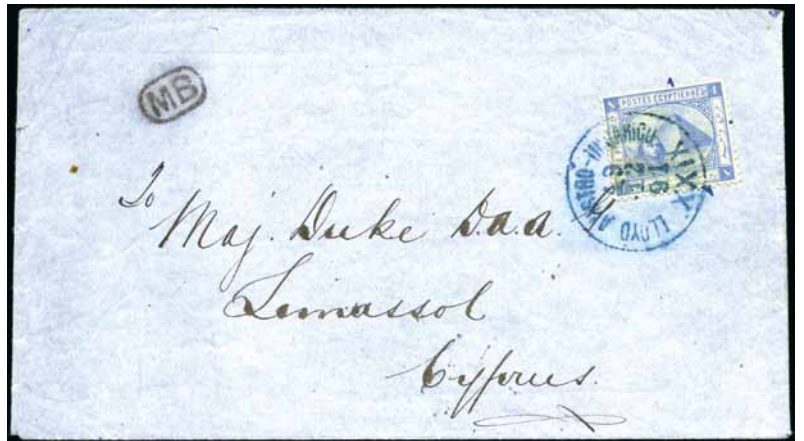 MB
POSTES EGYPTIENNES
LLOYD AUSTRO-UNGARICO
XIVX
To
Maj. Duke D.a.a.
Lemassol
Cyprus.